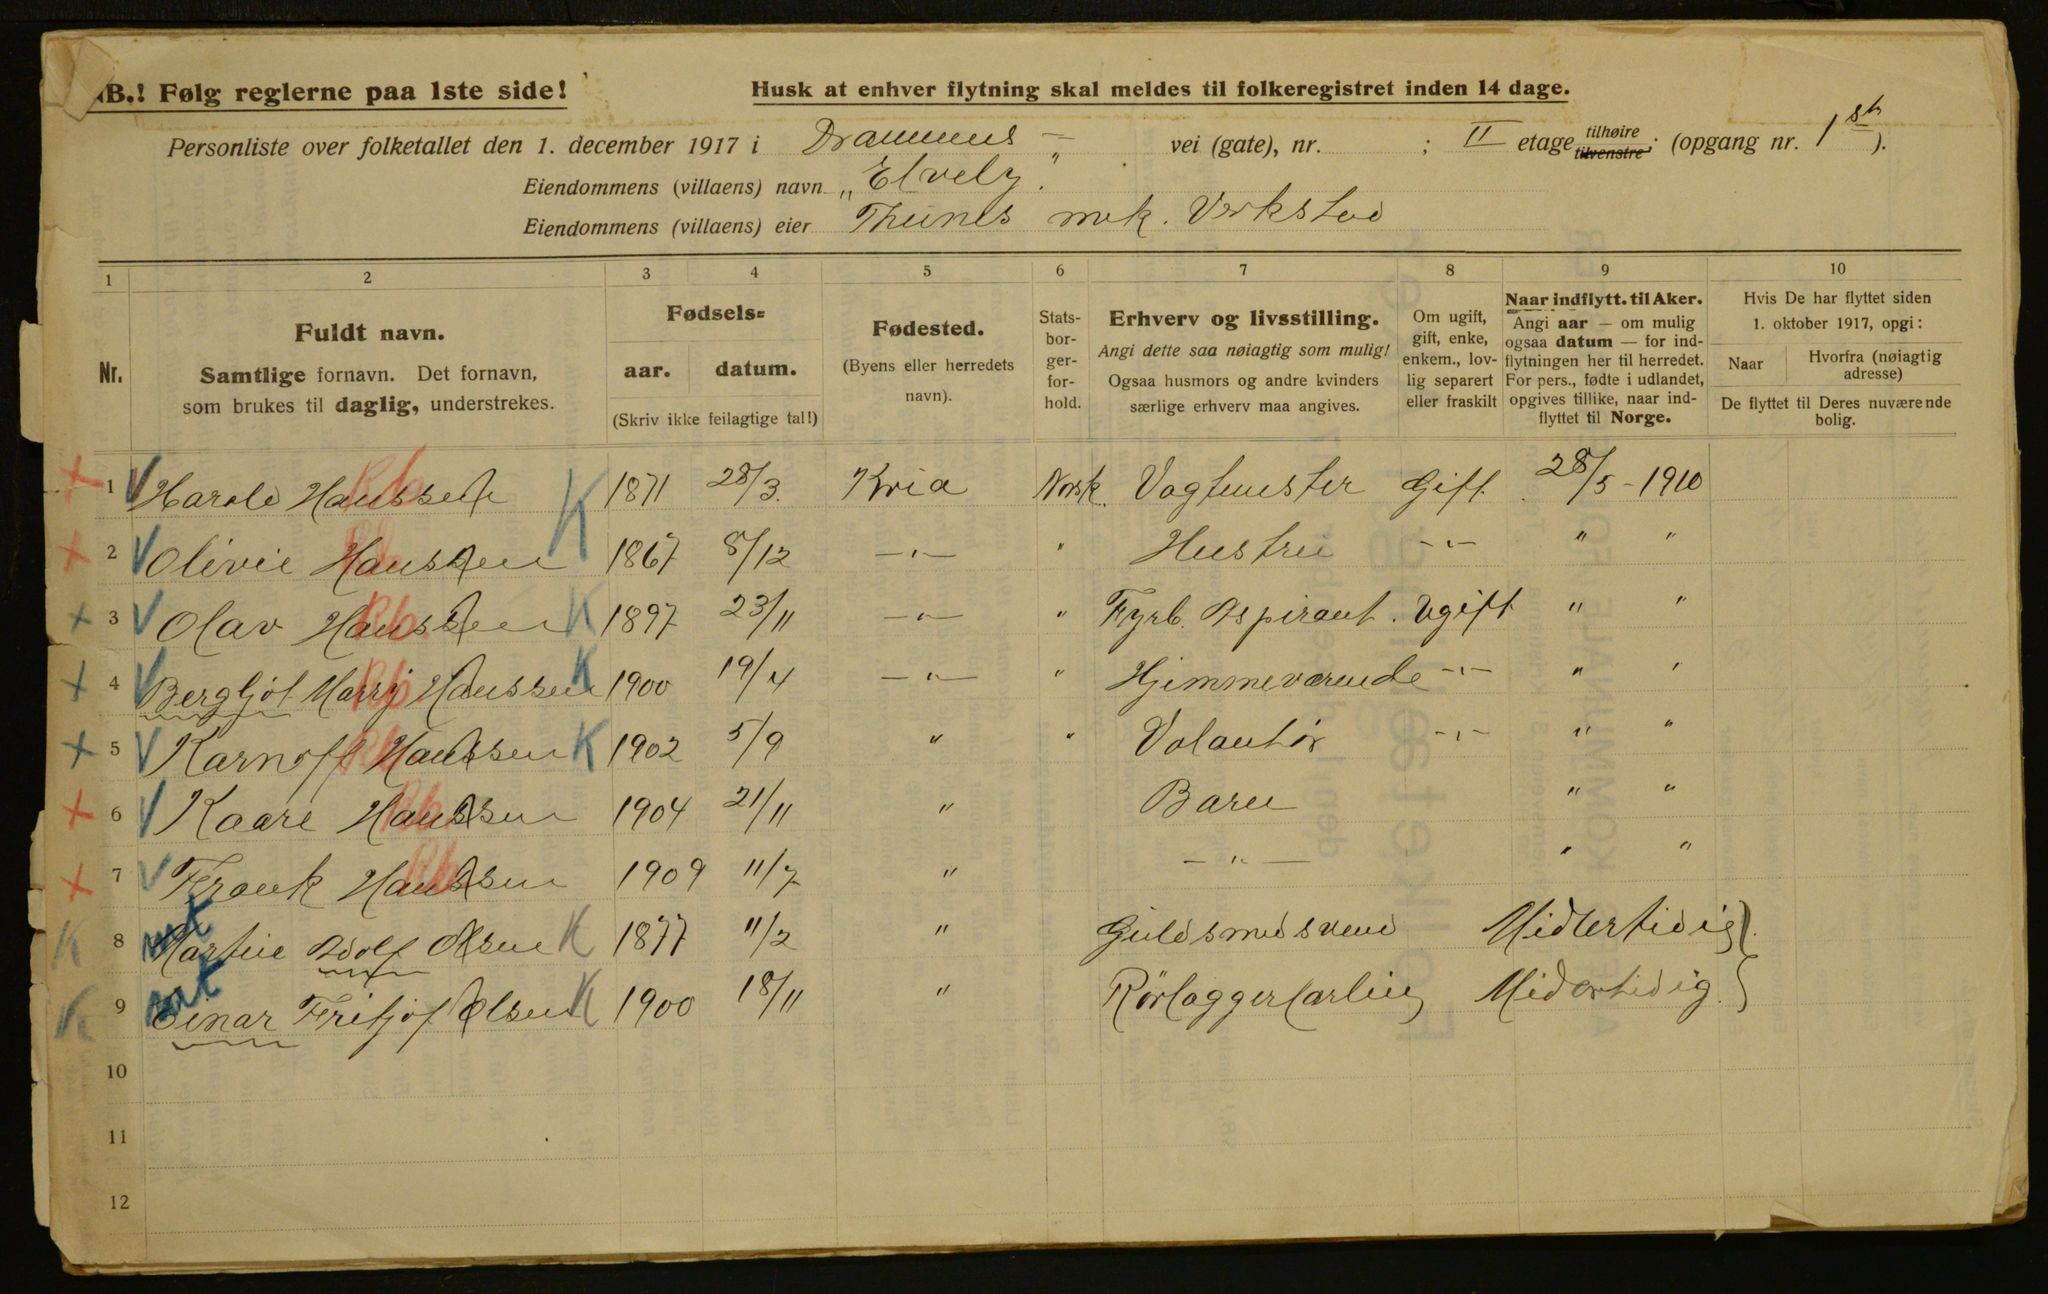 NB.! Følg reglerne paa 1ste side!
Husk at enhver flytning skal meldes til folkeregistret inden 14 dage.
Personliste over folketallet den 1. december 1917 i Drammens – vei (gate), nr. ; II etage tilhøire tilvenstre; (opgang nr. 1 st).
Eiendommens (villaens) navn „Elvely."
Eiendommens (villaens) eier Thunes mek. Verksted
1 2 3 4 5 6 7 8 9 10
Nr.
Fuldt navn.
Samtlige fornavn. Det fornavn,
som brukes til daglig, understrekes.
Fødsels=
aar. datum.
(Skriv ikke feilagtige tal!)
Fødested.
(Byens eller herredets
navn).
Stats-
bor-
ger-
for-
hold.
Erhverv og livsstilling.
Angi dette saa nøiagtig som mulig!
Ogsaa husmors og andre kvinders
særlige erhverv maa angives.
Om ugift,
gift, enke,
enkem., lov-
lig separert
eller fraskilt
Naar indflytt. til Aker.
Angi aar — om mulig
ogsaa datum — for ind-
flytningen her til herredet.
For pers., fødte i udlandet,
opgives tillike, naar ind-
flyttet til Norge.
Hvis De har flyttet siden
1. oktober 1917, opgi:
Naar Hvorfra (nøiagtig
adresse)
De flyttet til Deres nuværende
bolig.
1 Harald Hanssen K 1871 28/3. Kria Norsk. Vagtmester Gift. 28/5 - 1910
2 Olivie Hanssen 1867 8/12 —"— " Hustru —"— " "
3 Olav Hanssen K 1897 23/11 —"— " Fyrb. Aspirant. Ugift " "
4 Bergljot Marry Hanssen K 1900 19/4 —"— " Hjemmeværende —"— " "
5 Karnoff Hanssen K 1902 5/9 " " Volantør —"— " "
6 Kaare Hanssen 1904 21/11 " Barn " "
7 Frank Hanssen 1909 11/7 " —"— " "
8 Martin Adolf Olsen K 1877 11/2 " Guldsmedsvend Midlertidig }
9 Einar Fritjof Olsen K 1900 18/11 " Rørlæggerlærling Midlertidig. }
10
11
12